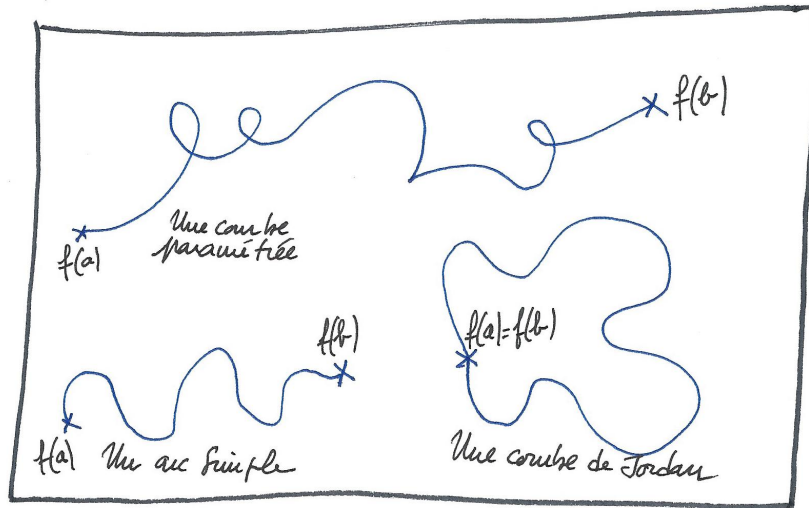 f(b)
Une courbe
paramétrée
f(a)
f(a)=f(b)
f(b)
f(a) Un arc simple
Une courbe de Jordan